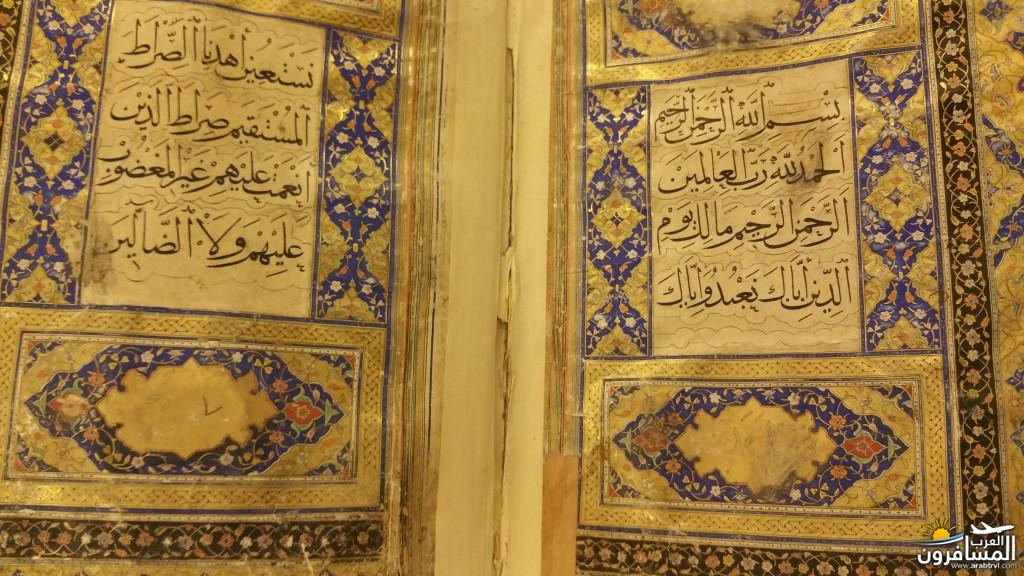 بِسْمِ اللّٰهِ الرَّحْمٰنِ الرَّحِيْمِ
اَلْحَمْدُ لِلّٰهِ رَبِّ الْعَالَمِيْنَ
اَلرَّحْمٰنِ الرَّحِيْمِ مَالِكِ يَوْمِ
الدِّيْنِ اِيَّاكَ نَعْبُدُ وَاِيَّاكَ
نَسْتَعِيْنُ اِهْدِنَا الصِّرَاطَ
الْمُسْتَقِيْمَ صِرَاطَ الَّذِيْنَ
اَنْعَمْتَ عَلَيْهِمْ غَيْرِ الْمَغْضُوْبِ
عَلَيْهِمْ وَلَا الضَّالِّيْنَ
العرب
المسافرون
www.arabtrvl.com